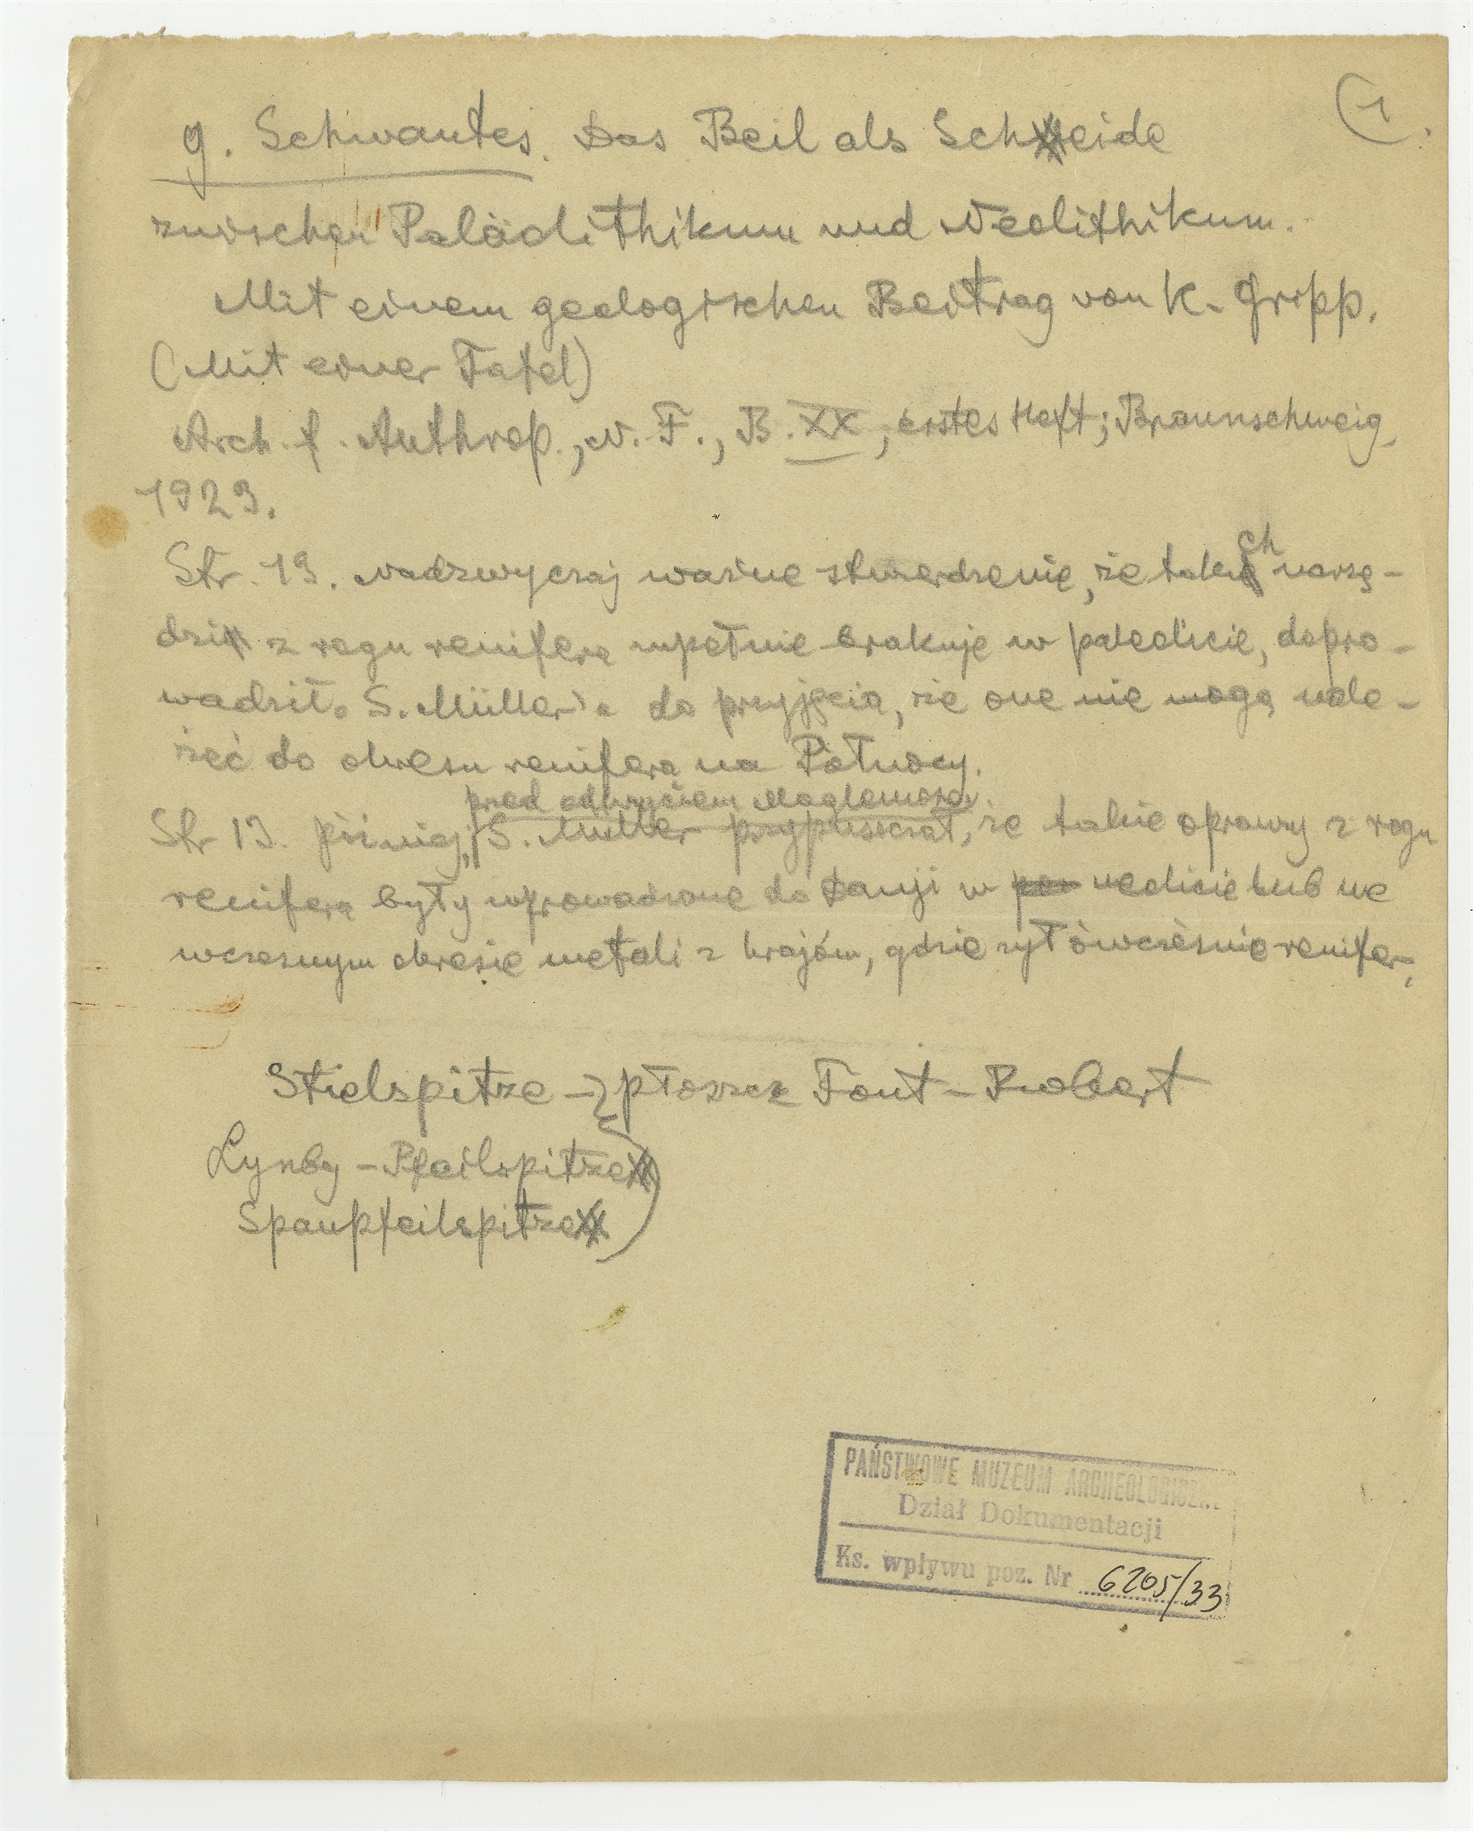 1.
G. Schwantes. Das Beil als Scheide
zwischen Paläolithikum und Neolithikum.
Mit einem geologischen Beitrag von K. Gripp.
(Mit einer Tafel)
Arch. f. Anthrop., N. F., B. XX, erstes Heft; Braunschweig,
1923.
Str. 13. Nadzwyczaj ważne stwierdzenie, że takich narzę-
dzi z rogu renifera zupełnie brakuje w paleolicie, dopro-
wadziło S. Müller'a do przyjęcia, że one nie mogą nale-
żeć do okresu renifera na Północy.
przed odkryciem Maglemose
Str 13. później, S. Müller przypuszczał, że takie oprawy z rogu
renifera były wprowadzone do Danji w neolicie lub we
wczesnym okresie metali z krajów, gdzie żył ówcześnie renifer,
Stielspitze - płoszcz Font-Robert
Lynby-Pfeilspitze
Spanpfeilspitze
PAŃSTWOWE MUZEUM ARCHEOLOGICZNE
Dział Dokumentacji
Ks. wpływu poz. Nr 6205/33